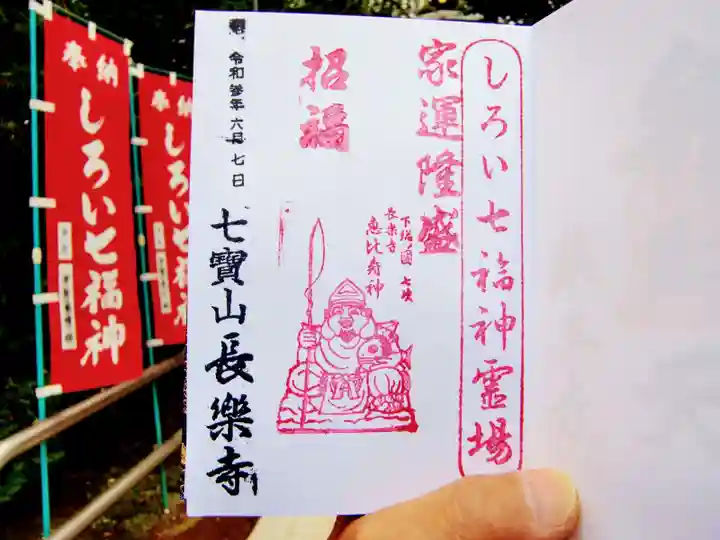 しろい七福神霊場
家運隆盛
招福
下総国 七次
長楽寺
恵比寿神
令和参年六月七日
七寳山長樂寺
奉納
しろい七福神
奉納
しろい七福神